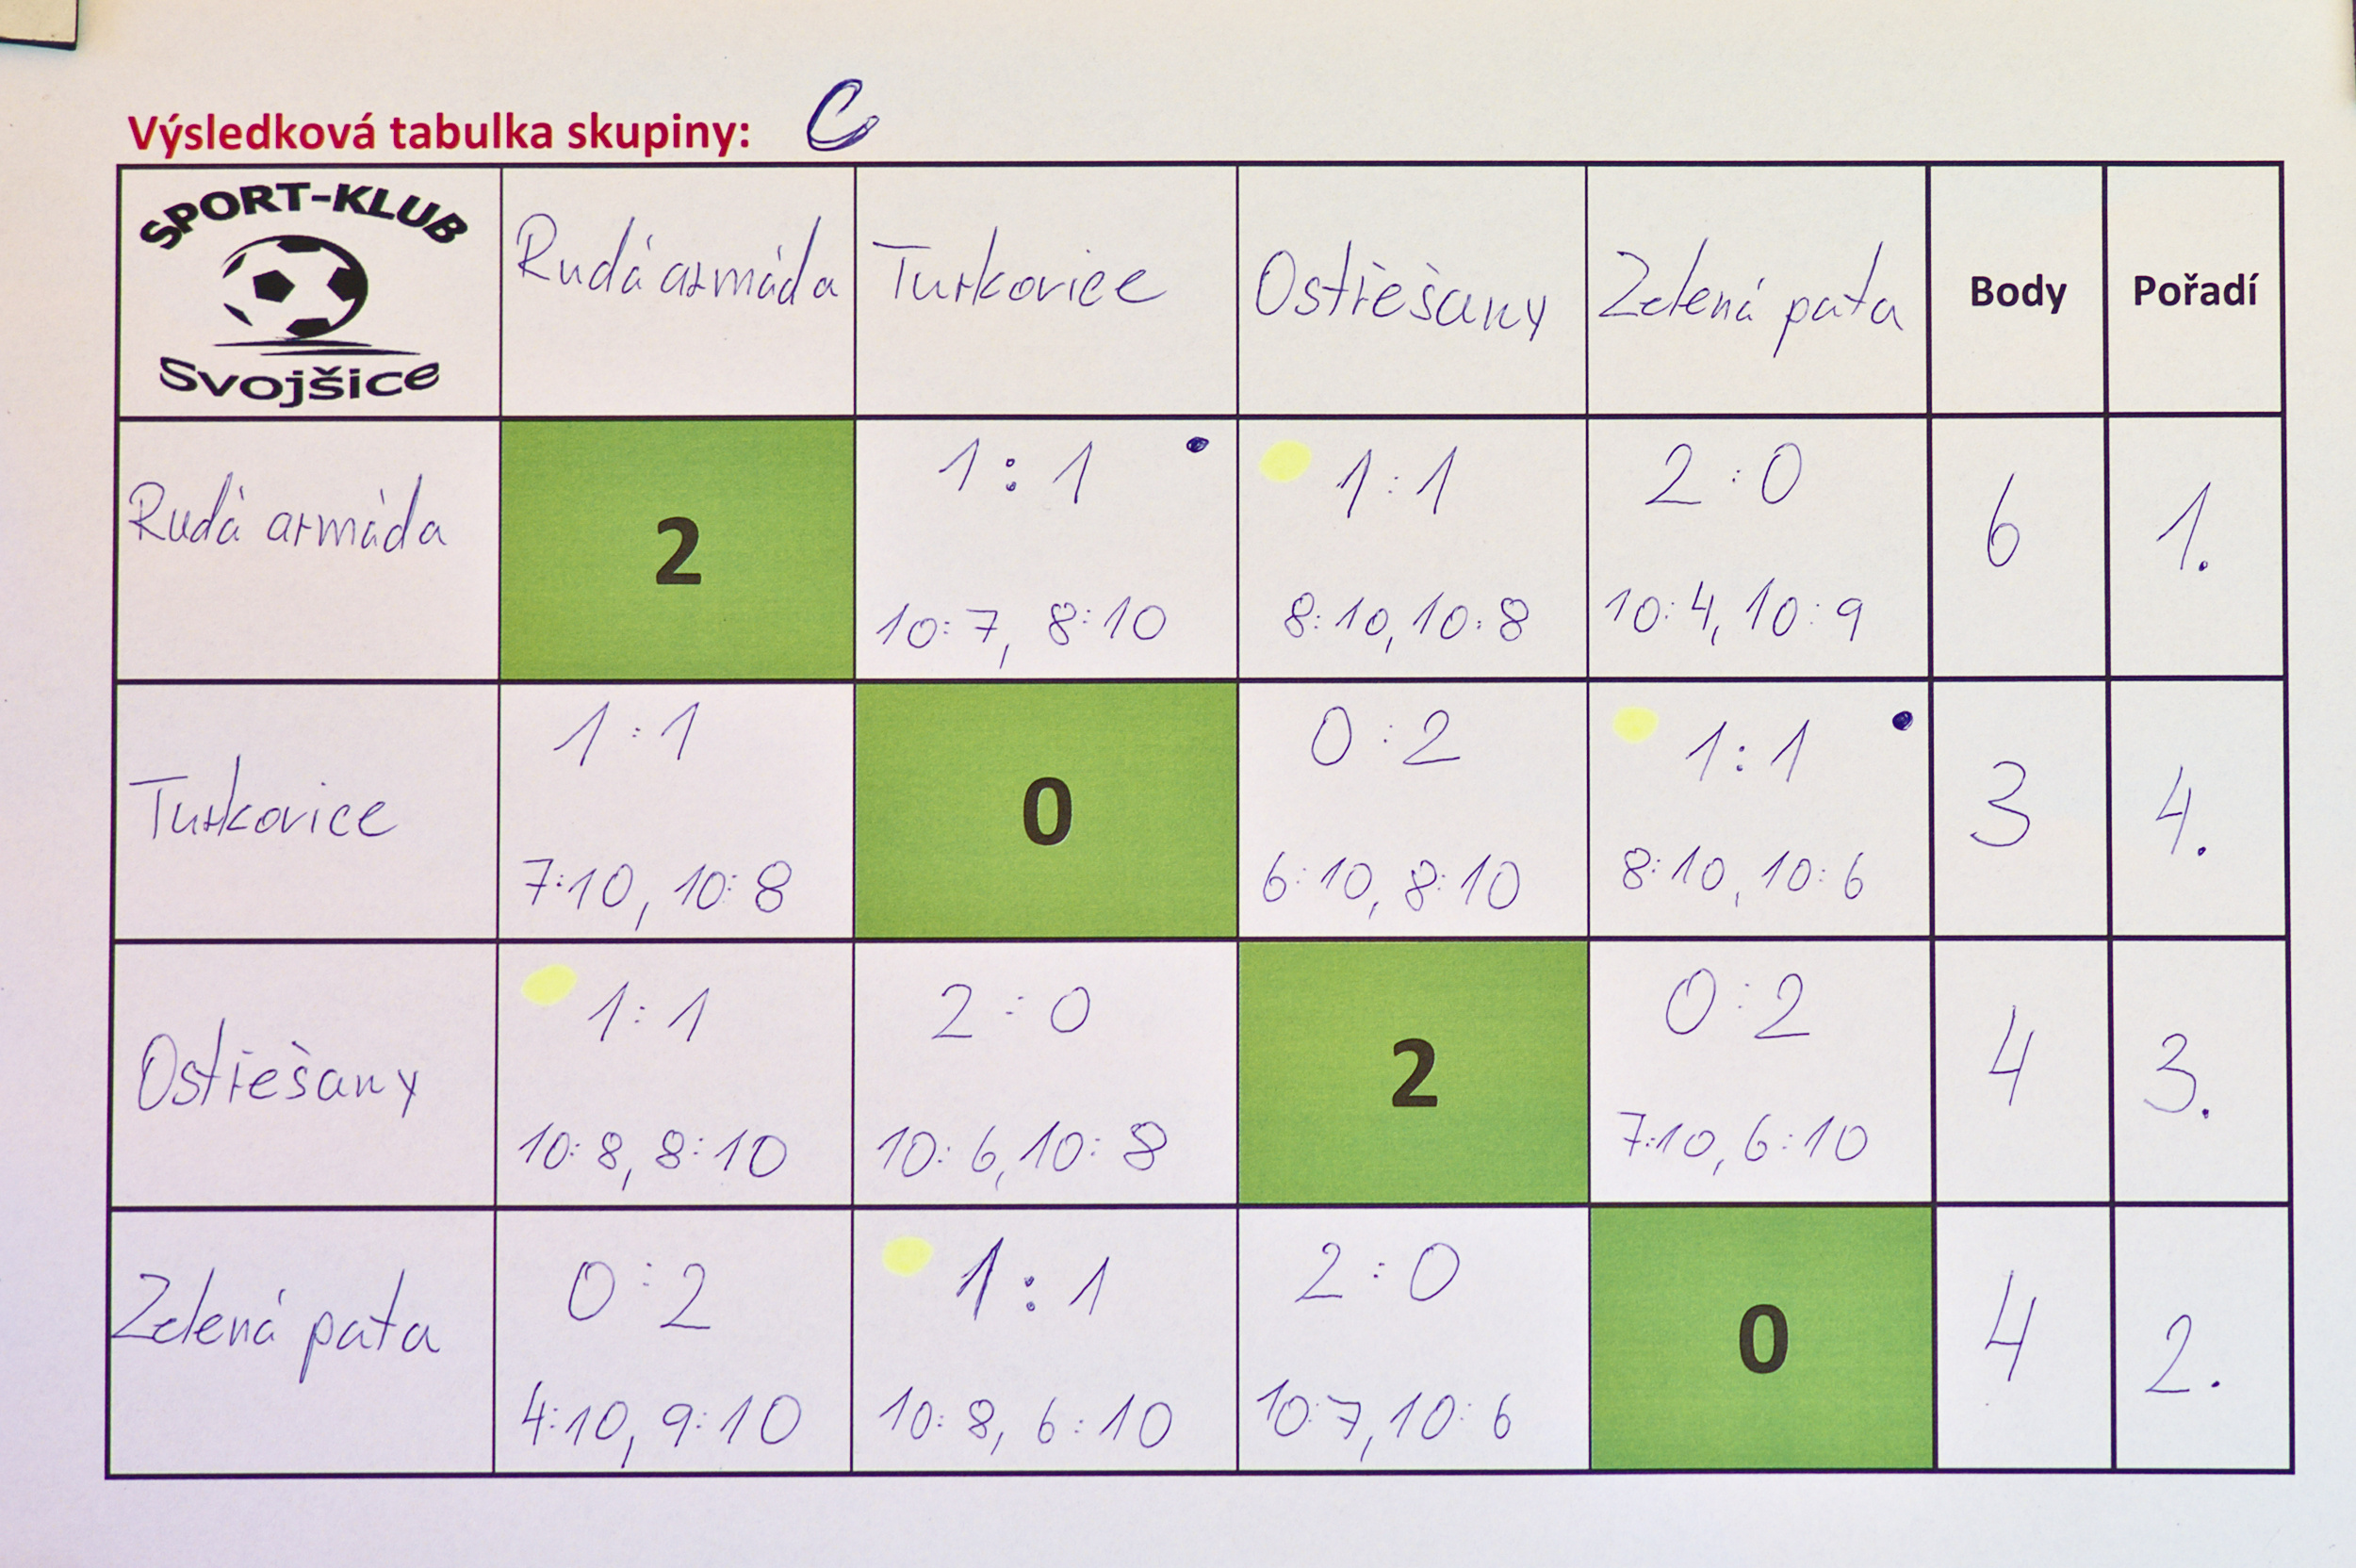 Výsledková tabulka skupiny: C
SPORT-KLUB
Svojšice
Rudá armáda Turkovice Ostřešany Zelená pata Body Pořadí
1:1 1:1 2:0
Rudá armáda 2 6 1.
10:7, 8:10 8:10, 10:8 10:4, 10:9
1:1 0:2 1:1
Turkovice 0 3 4.
7:10, 10:8 6:10, 8:10 8:10, 10:6
1:1 2:0 0:2
Ostřešany 2 4 3.
10:8, 8:10 10:6, 10:8 7:10, 6:10
0:2 1:1 2:0
Zelená pata 0 4 2.
4:10, 9:10 10:8, 6:10 10:7, 10:6